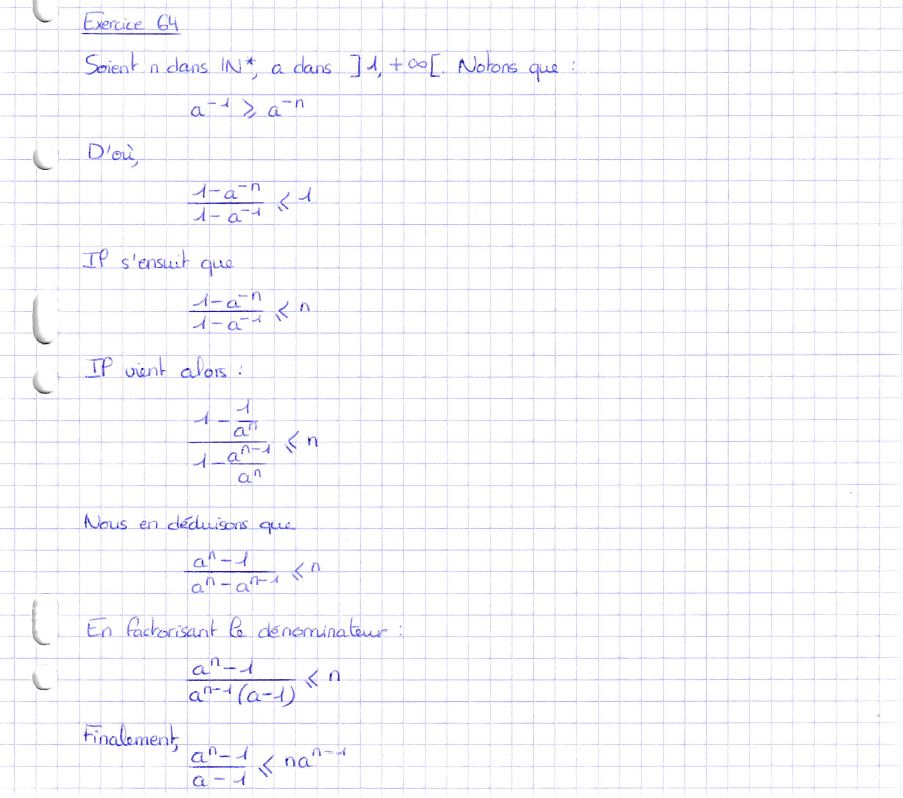 Exercice 64
Soient n dans ℕ*, a dans ]1, +∞[. Notons que :
a⁻¹ ⩾ a⁻ⁿ
D'où,
(1-a⁻ⁿ)/(1-a⁻¹) ⩽ 1
Il s'ensuit que
(1-a⁻ⁿ)/(1-a⁻¹) ⩽ n
Il vient alors :
(1 - 1/aⁿ)/(1 - aⁿ⁻¹/aⁿ) ⩽ n
Nous en déduisons que
(aⁿ-1)/(aⁿ-aⁿ⁻¹) ⩽ n
En factorisant le dénominateur :
(aⁿ-1)/(aⁿ⁻¹(a-1)) ⩽ n
Finalement,
(aⁿ-1)/(a-1) ⩽ naⁿ⁻¹